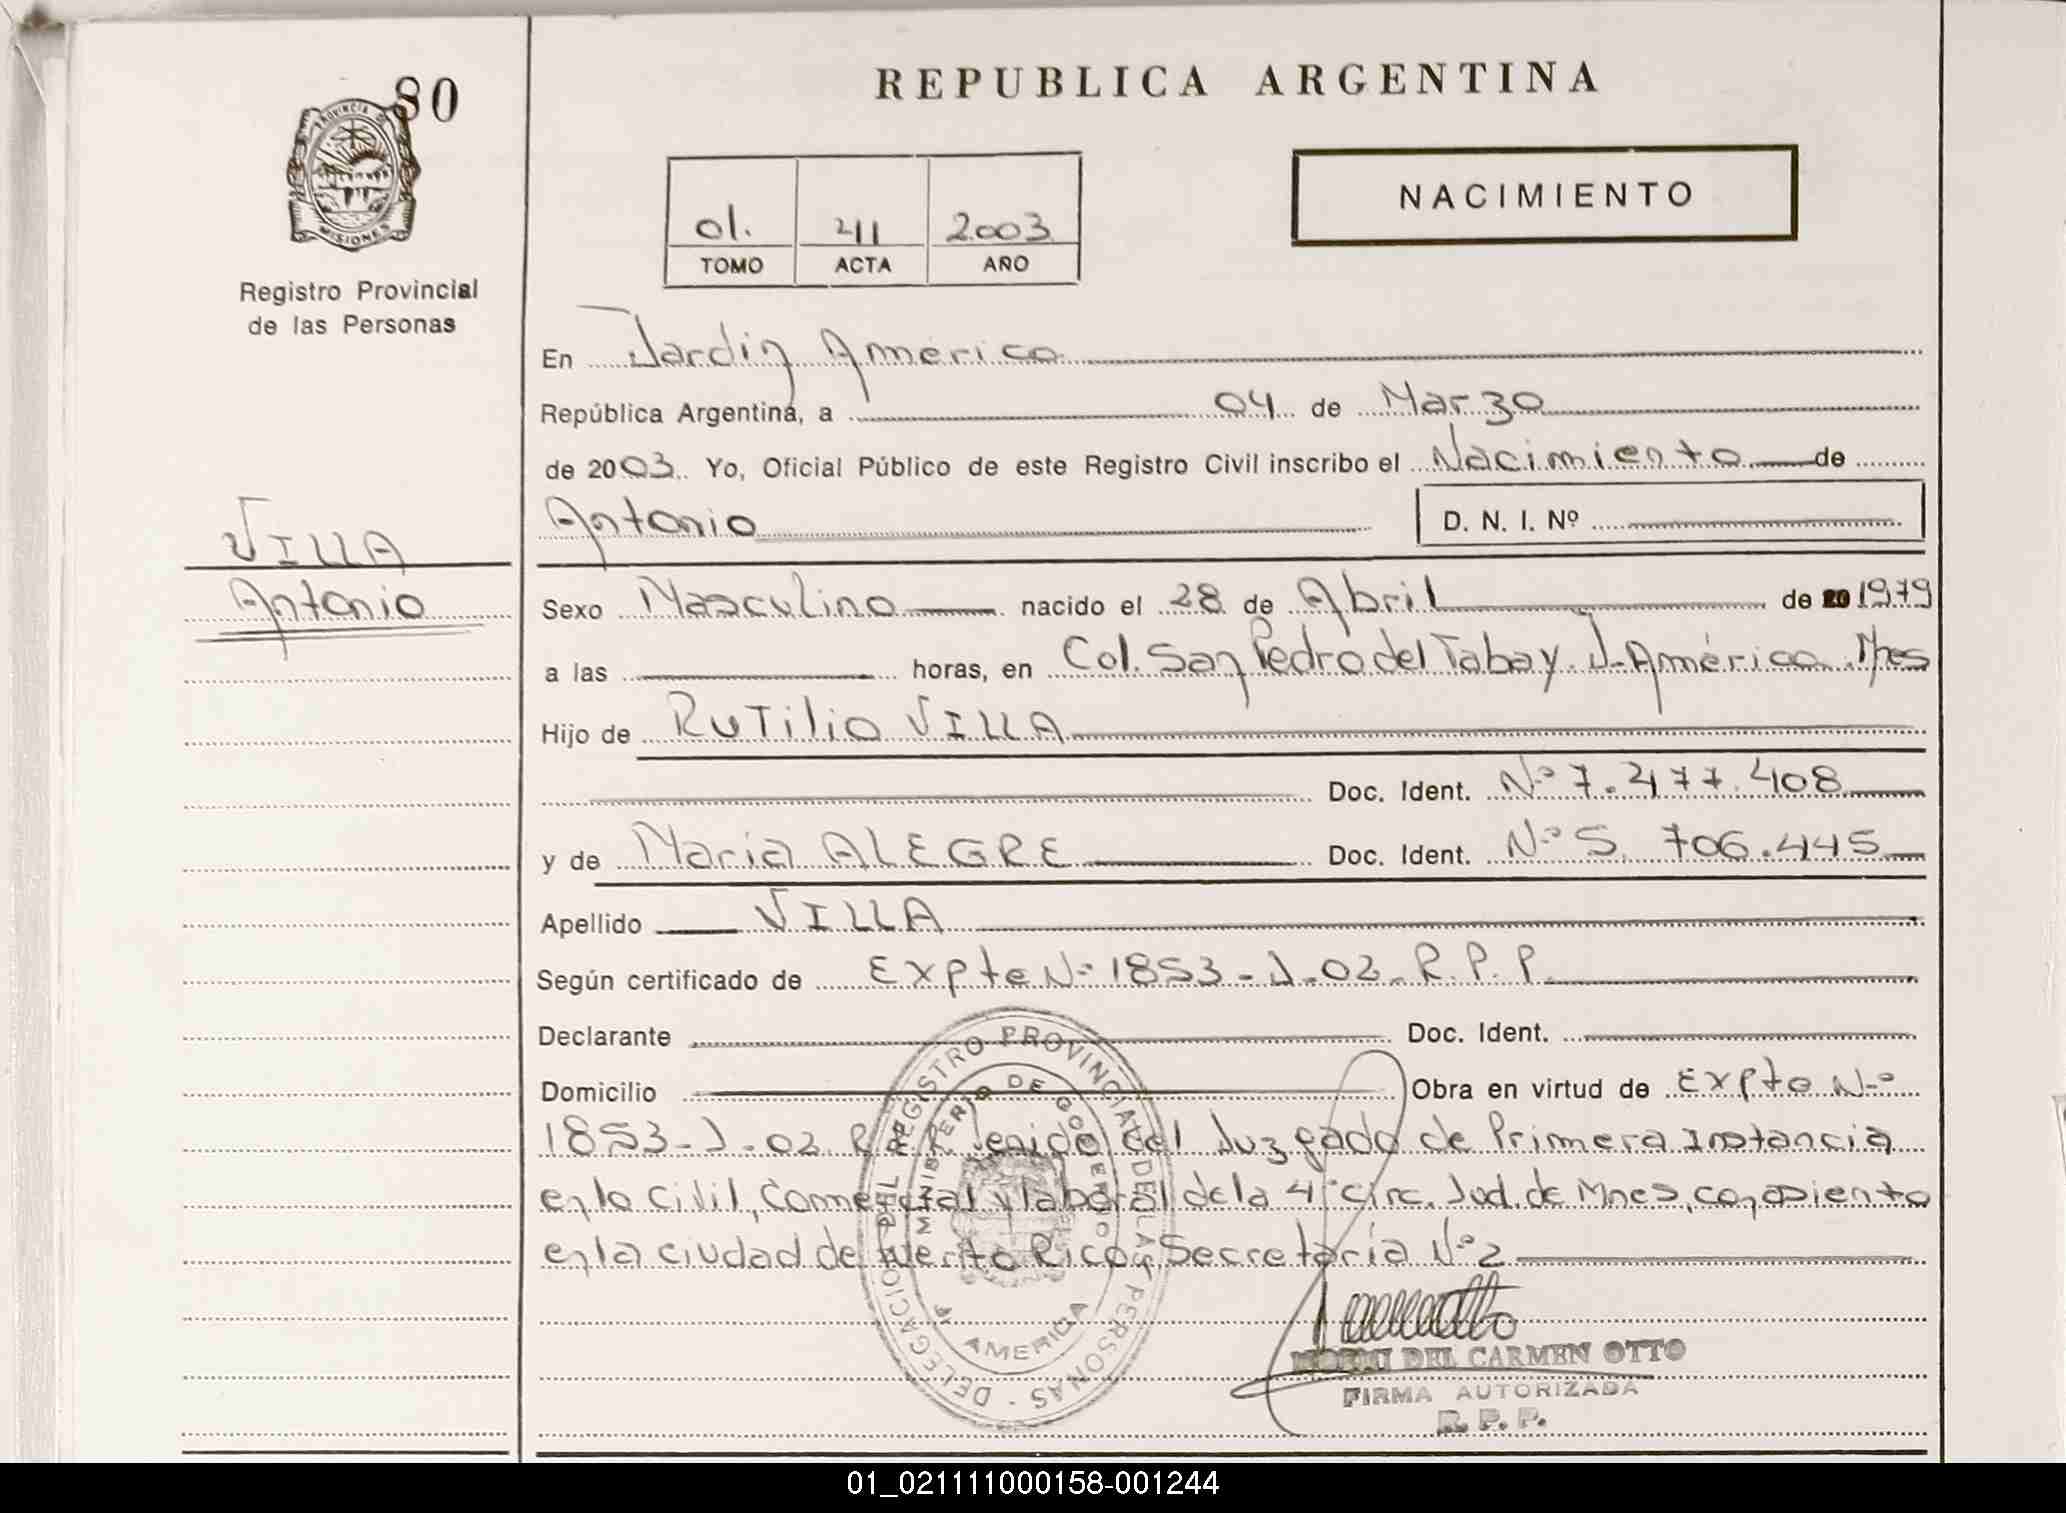 80
PROVINCIA DE
MISIONES
Registro Provincial
de las Personas
VILLA
Antonio
REPUBLICA ARGENTINA
NACIMIENTO
01. 211 2003
TOMO ACTA AÑO
En Jardin América
República Argentina, a 04 de Marzo
de 2003. Yo, Oficial Público de este Registro Civil inscribo el Nacimiento de
Antonio D. N. I. Nº
Sexo Masculino nacido el 28 de Abril de 20 1979
a las horas, en Col. San Pedro del Tabay. J. América. Mnes
Hijo de Rutilio VILLA
Doc. Ident. Nº 7.477.408
y de Maria ALEGRE Doc. Ident. Nº 5.706.445
Apellido VILLA
Según certificado de Expte Nº 1853-J-02. R.P.P.
Declarante Doc. Ident.
Domicilio Obra en virtud de Expte Nº
1853-J-02 R.P.P. venido del Juzgado de Primera Instancia
en lo Civil, Comercial y laboral de la 4º Circ. Jud. de Mnes, con asiento
en la ciudad de Puerto Rico, Secretaría Nº 2
DELEGACION DEL REGISTRO PROVINCIAL DE LAS PERSONAS -
MINISTERIO DE GOBIERNO
AMERICA
NOEMI DEL CARMEN OTTO
FIRMA AUTORIZADA
R. P. P.
01_021111000158-001244